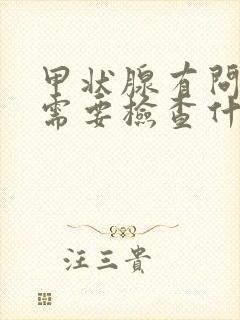 甲状腺有問
需要檢查什
汪三貴